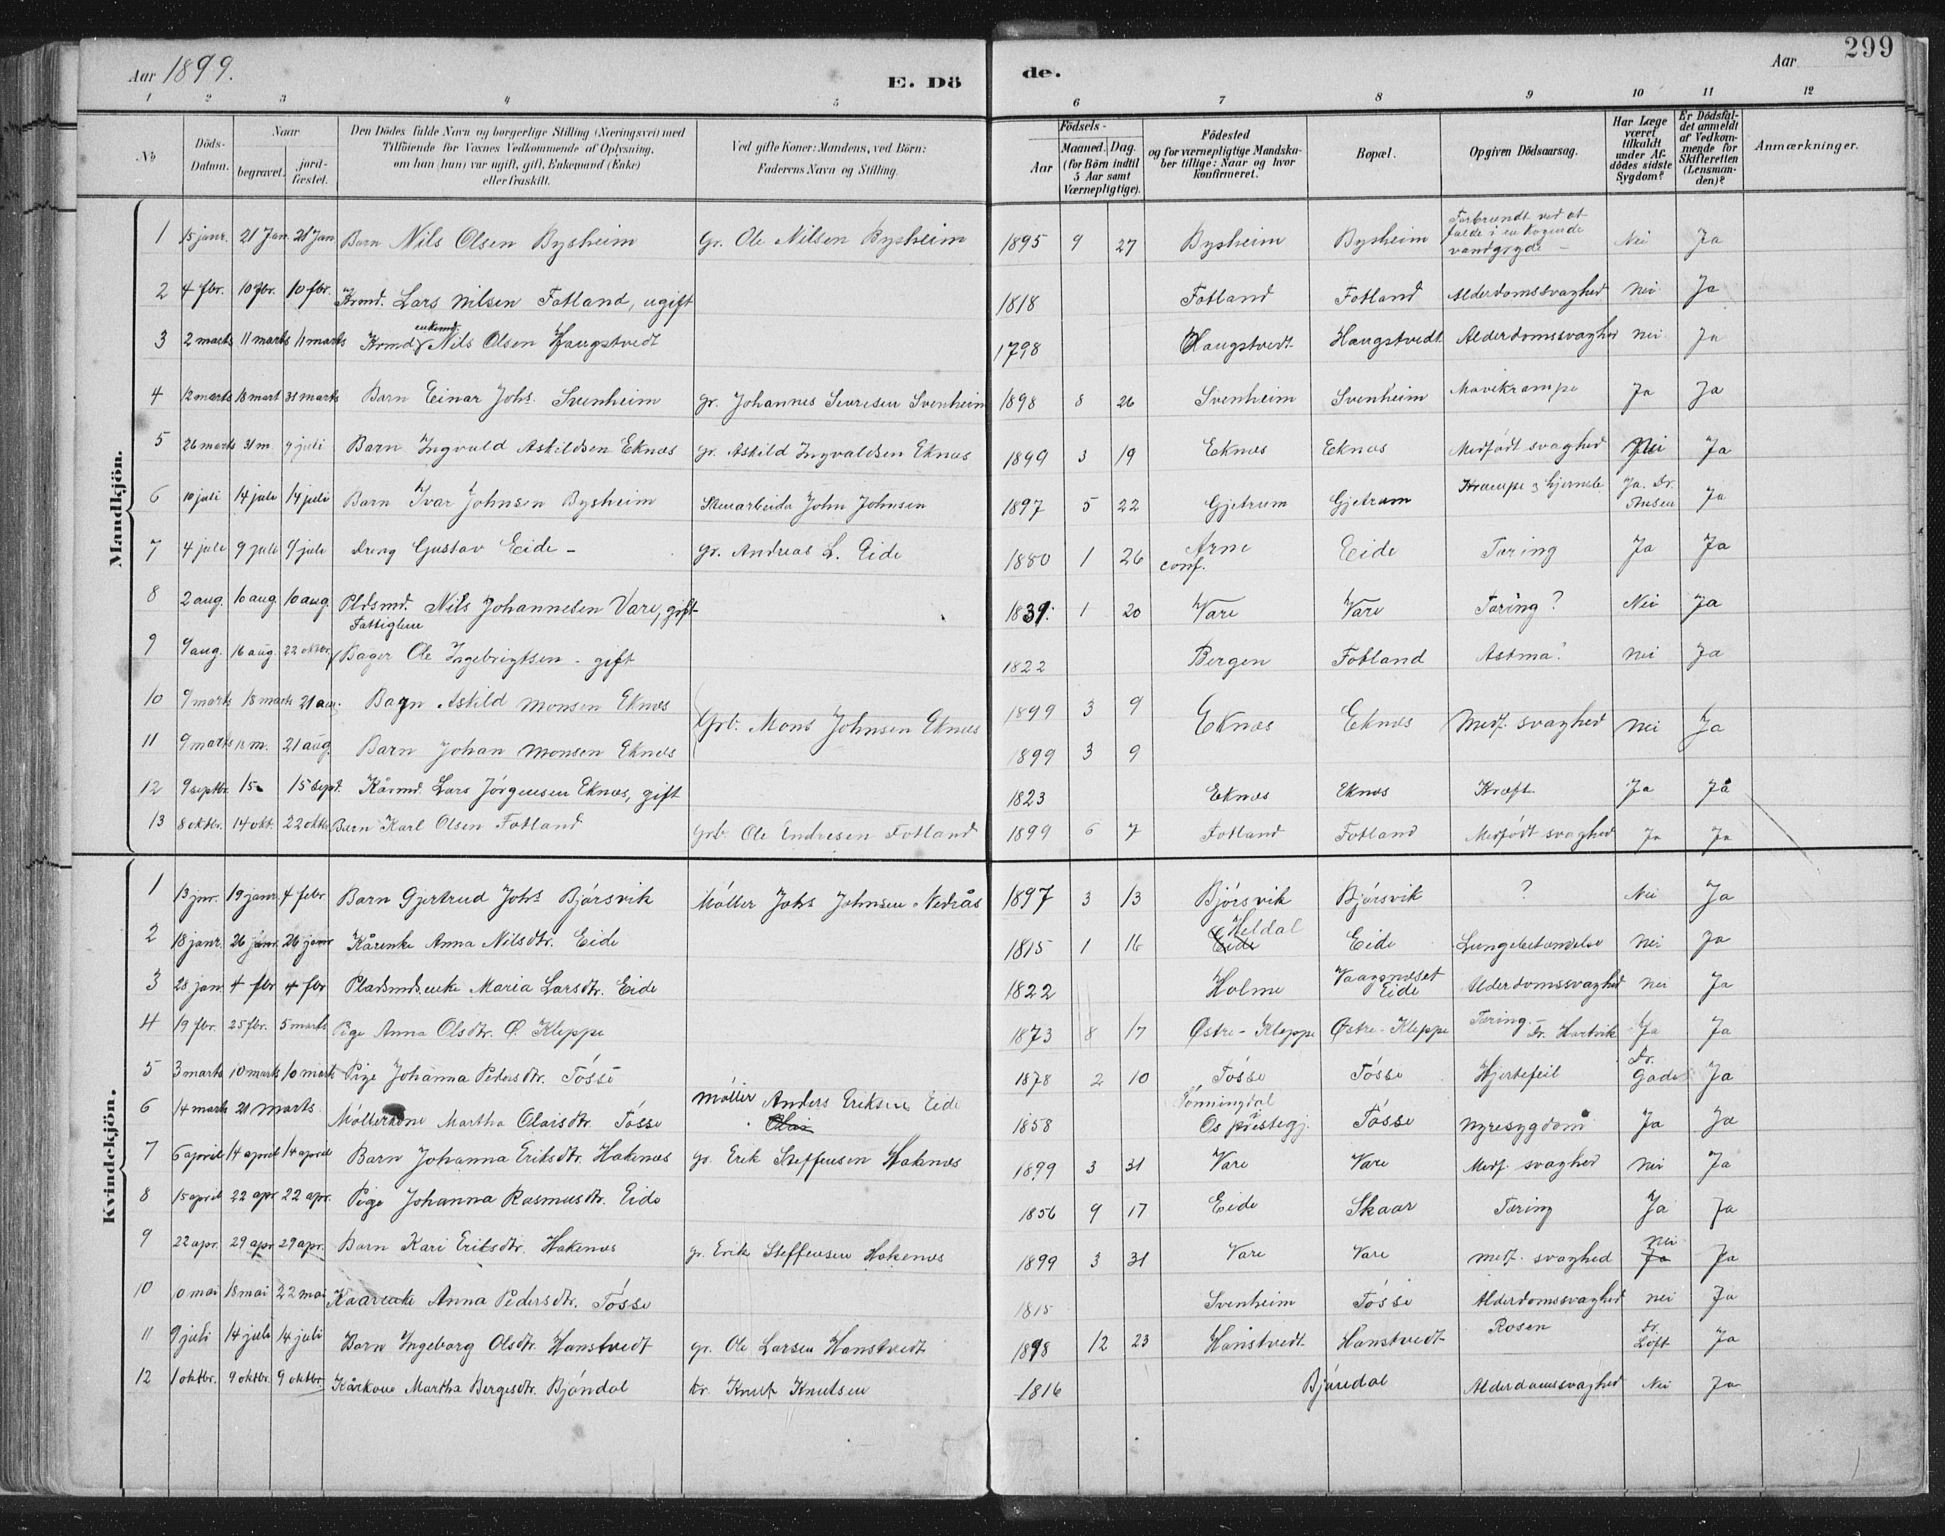 Aar 1899. E. Döde. Aar 299
1 2 3 4 5 6 7 8 9 10 11 12
No
Döds-Datum.
Naar
begravet.
jord-fæstet.
Den Dödes fulde Navn og borgerlige Stilling (Næringsvei) med
Tilföiende for Voxnes Vedkommende af Oplysning,
om han (hun) var ugift, gift, Enkemand (Enke)
eller fraskilt.
Ved gifte Koner: Mandens, ved Börn:
Faderens Navn og Stilling.
Födsels-
Aar
Maaned. Dag.
(for Börn indtil
5 Aar samt
Værnepligtige).
Födested
og for værnepligtige Mandska-
ber tillige: Naar og hvor
konfirmeret.
Bopæl.
Opgiven Dödsaarsag.
Har Læge
været
tilkaldt
under Af-
dödes sidste
Sygdom?
Er Dödsfal-
det anmeldt
af Vedkom-
mende for
Skifteretten
(Lensman-
den)?
Anmærkninger.
Mandkjön.
1 15 janr. 21 Jan. 21 Jan Barn Nils Olsen Bysheim Gr. Ole Nilsen Bysheim 1895 9 27 Bysheim Bysheim Forbrændt ved at falde i en kogende vandgryde – Nei Ja
2 4 fbr. 10 fbr. 10 fbr. Krmd. Lars Nilsen Fotland, ugift 1818 Fotland Fotland Alderdomssvaghed Nei Ja
3 2 marts 11 marts 11 marts Krmd enkemd. Nils Olsen Haugstvedt 1798 Haugstvedt Haugstvedt Alderdomssvaghed Nei Ja
4 12 marts 18 mart 31 marts Barn Einar Johs. Svenheim gr. Johannes Sivresen Svenheim 1898 8 26 Svenheim Svenheim Mavekrampe Ja Ja
5 26 marts 31 m. 9 juli Barn Ingvald Askildsen Eknæs gr. Askild Ingvaldsen Eknæs 1899 3 19 Eknæs Eknæs Medfødt svaghed Nei Ja
6 10 juli 14 juli 14 juli Barn Ivar Johnsen Bysheim Stenarbeider John Johnsen 1897 5 22 Gjetrum Gjetrum Krampe Ja. Dr. Ja
7 4 juli 9 juli 9 juli Dreng Gustav Eide – gr. Andreas L. Eide 1880 1 26 Arne conf. Eide Tæring Ja Ja
8 2 aug. 10 aug. 10 aug. Pldsmd. Nils Johannesen Vare, gift 1839. 1 20 Vare Vare Tæring? Nei Ja
9 9 aug. 16 aug. 22 oktbr. Fattiglem Bager Ole Ingebrigtsen – gift 1822 Bergen Fotland Astma? Nei Ja
10 9 marts 18 marts 21 aug. Barn Askild Monsen Eknæs Grb. Mons Johnsen Eknæs 1899 3 9 Eknæs Eknæs Medf. svaghed Nei Ja
11 9 marts 18 m. 21 aug. Barn Johan Monsen Eknæs 1899 3 9
12 9 septbr. 15 15 sept. Kårmd. Lars Jørgensen Eknæs, gift 1823 Eknæs Eknæs Kræft Ja Ja
13 8 oktbr. 14 okt. 22 oktbr. Barn Karl Olsen Fotland Grb. Ole Endresen Fotland 1899 6 7 Fotland Fotland Medfødt svaghed Ja Ja
Kvindekjön.
1 13 jnr. 19 janr 4 febr Barn Gjertrud Johs Bjórsvik Móller Johs Johnsen Nedrås 1897 3 13 Bjórsvik Bjórsvik ? Nei Ja
2 18 janr. 26 janr. 26 janr Kårenke Anna Nilsdtr. Eide 1815 1 16 Eide Heldal Eide Lungebetændelse Nei Ja
3 28 jan 4 fbr 4 fbr Pladsmds.enke Maria Larsdtr. Eide 1822 Holme Vaagsnæset Eide Alderdomssvaghed Nei Ja
4 19 fbr. 25 fbr. 5 marts Pige Anna Olsdtr. Ø. Kleppe 1873 8 17 Østre-Kleppe Østre-Kleppe Tæring. – Dr. Hartvik Ja Ja
5 3 marts 10 marts 10 marts Pige Johanna Pedersdtr. Tósse 1878 2 10 Tósse Tósse Hjertefeil Dr. Gade Ja
6 14 marts 21 marts Møllerkone Martha Olaisdtr. Tósse Møller Anders Eriksen Eide Olai 1858 Tønningdal i Os præstegj. Tósse Nyresygdom Ja Ja
7 6 april 14 april 14 april Barn Johanna Eriksdtr. Hakenæs gr. Erik Steffensen Hakenæs 1899 3 31 Vare Vare Medf. svaghed Nei Ja
8 15 april 22 apr 22 apr. Pige Johanna Rasmusdtr. Eide 1856 9 17 Eide Skaar Tæring Ja Ja
9 22 apr. 29 apr 29 apr. Barn Kari Eriksdtr. Hakenæs gr. Erik Steffensen Hakenæs 1899 3 31 Vare Vare medf. svaghed Ja Nei Ja
10 0 mai 18 mai 22 mai Kaarenke Anna Pedersdtr. Tósse 1815 Svenheim Tósse Alderdomssvaghed Nei Ja
11 9 juli 14 juli 14 juli Barn Ingeborg Olsdtr. Hanstvedt gr. Ole Larsen Hanstvedt 1898 12 23 Hanstvedt Hanstvedt Rosen Dr. Loft Ja
12 1 oktbr. 9 oktbr. 9 oktbr. Kårkone Martha Bergesdtr. Bjóndal kr. Knut Knutsen 1816 Bjóndal Alderdomssvaghed Nei Ja